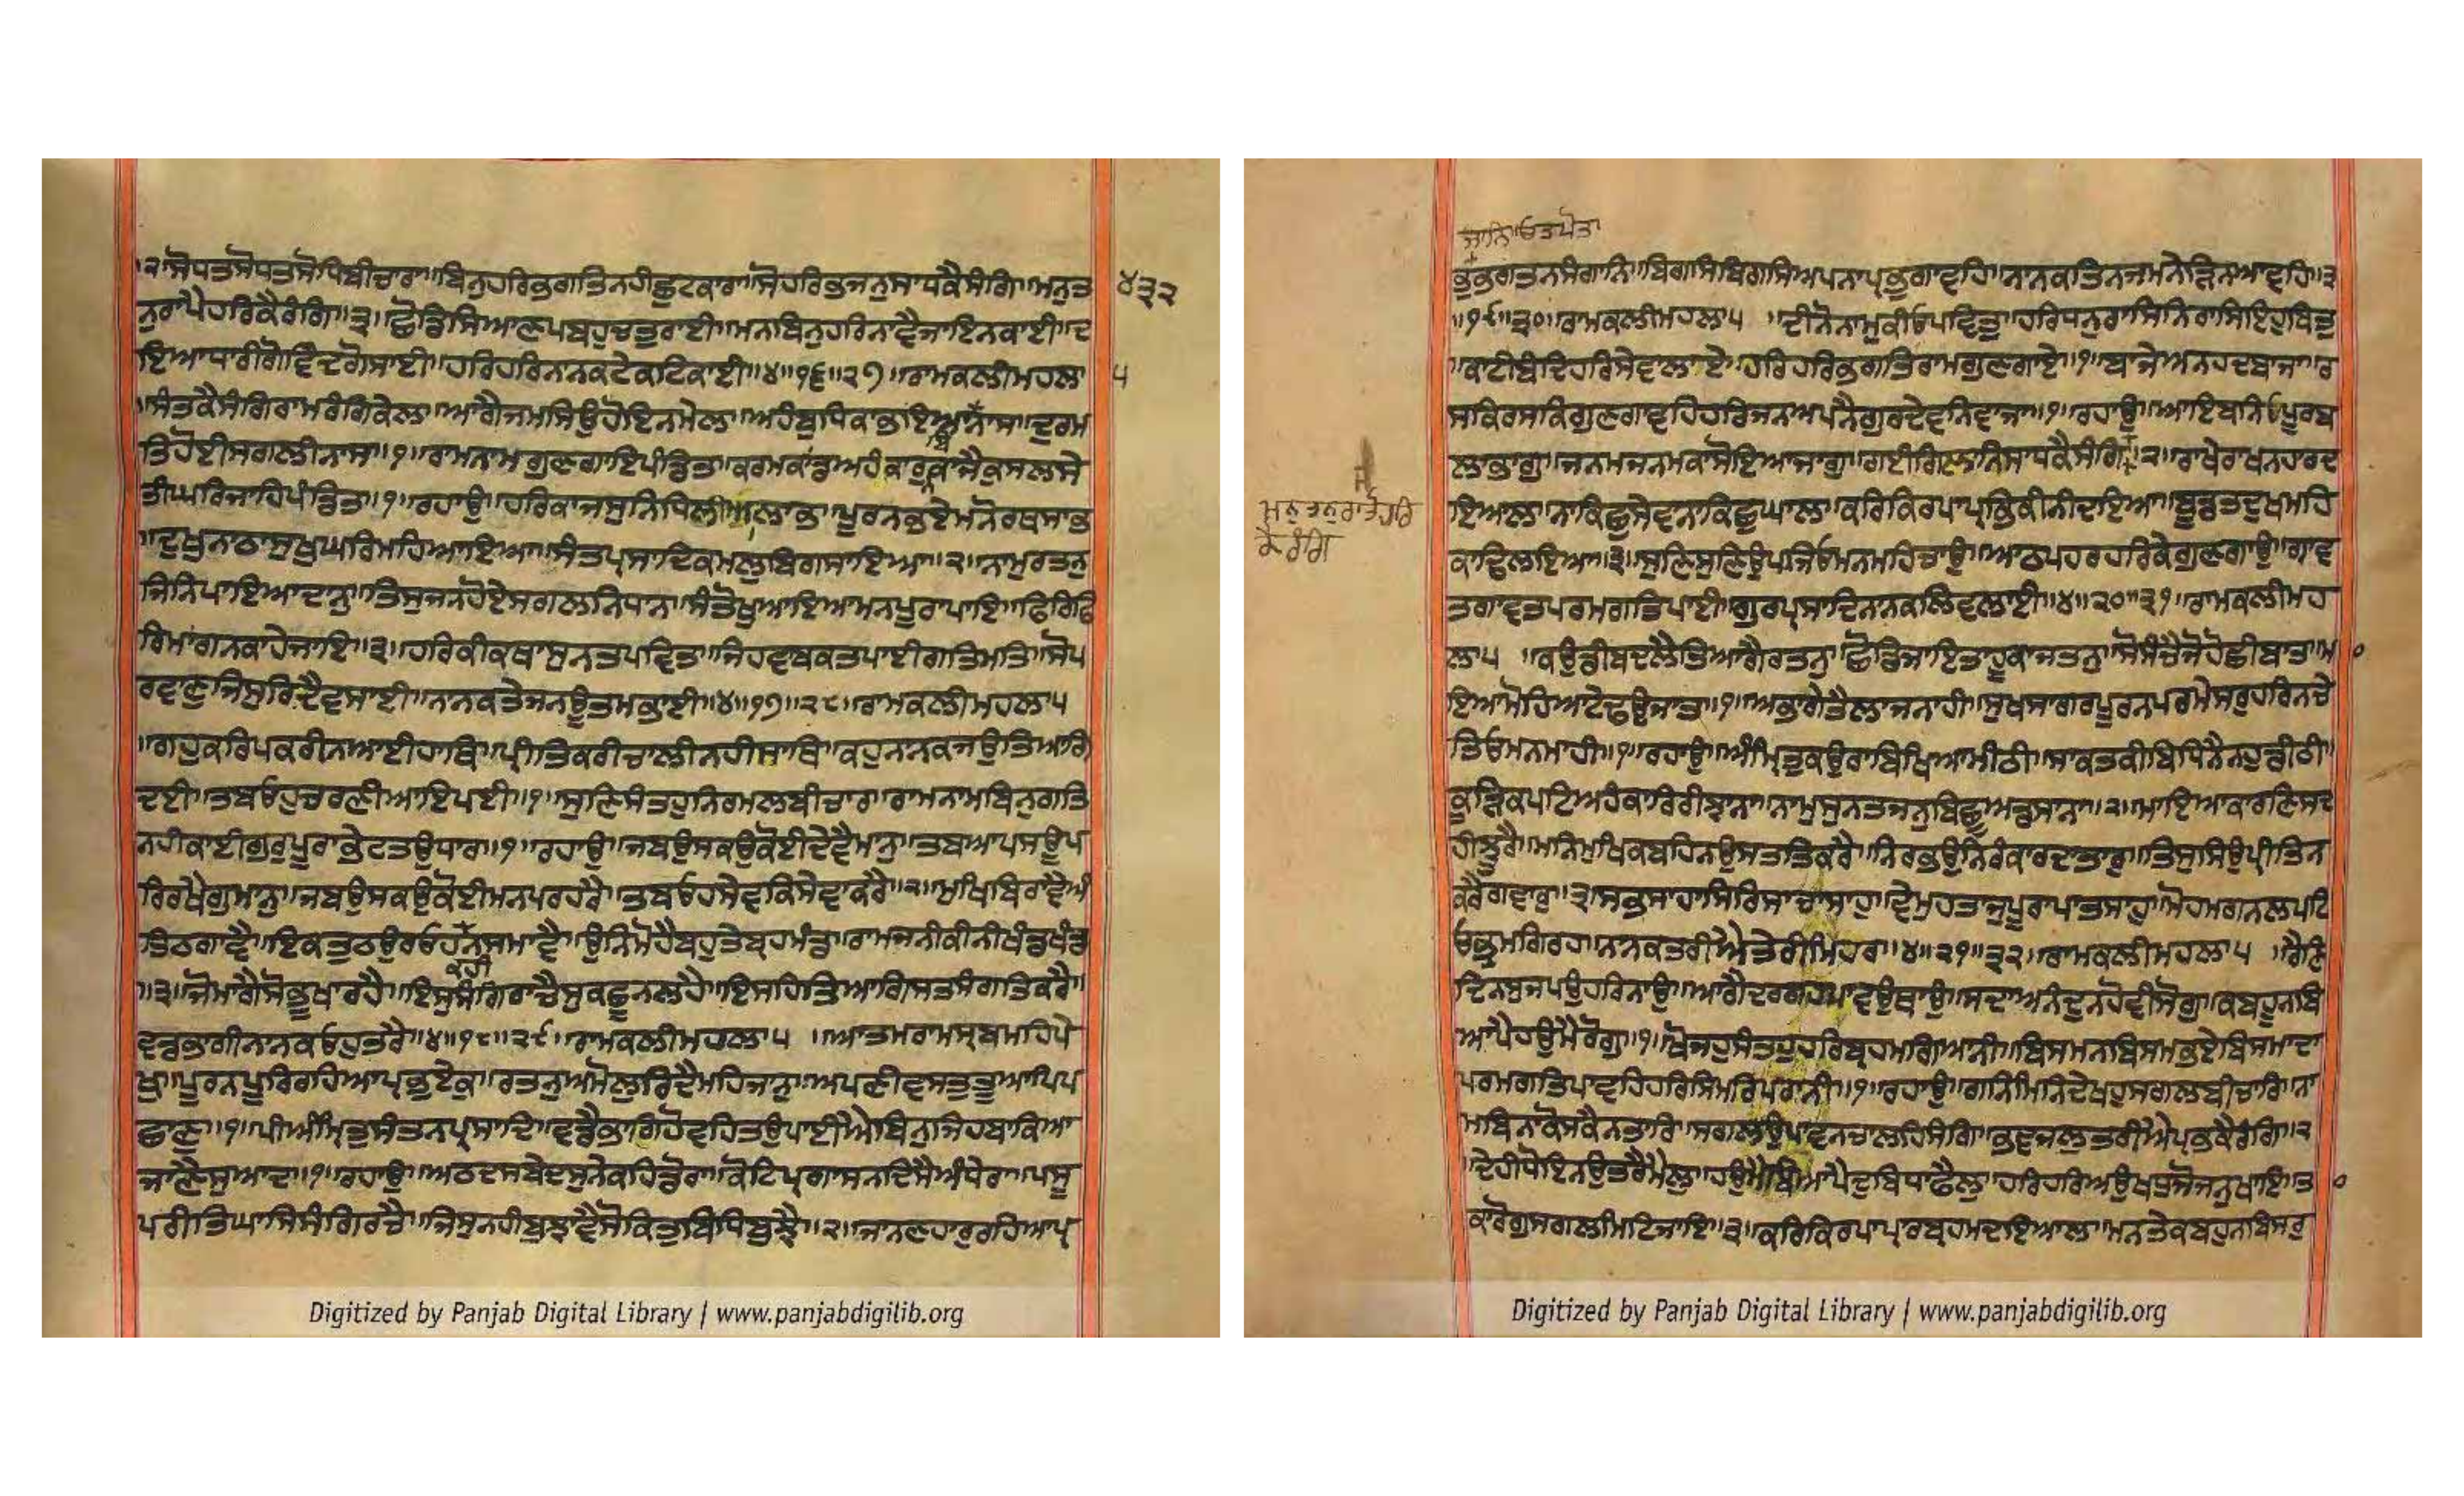 ੨॥ਸੋਪੜਤਸੋਪੜਤਸੋਪਿਬੀਚਾਰਾ॥ਬਿਨੁਹਰਿਭਗਤਿਨਹੀਛੁਟਕਾਰਾ॥ਸੋਹਰਿਭਜਨੁਸਾਧਕੈਸੰਗਿ॥ਮਨੁਤ ੪੩੨
ਨੁਰਾਪੈਹਰਿਕੈਰੰਗਿ॥੩॥ਛੋਡਿਸਿਆਣਪਬਹੁਚਤੁਰਾਈ॥ਮਨਬਿਨੁਹਰਿਨਾਵੈਜਾਇਨਕਾਈ॥ਦ
ਇਆਧਾਰੀਗੋਵਿੰਦਗੋਸਾਈ॥ਹਰਿਹਰਿਨਨਕਟੇਕਟਿਕਾਈ॥੪॥੧੬॥੨੭॥ਰਾਮਕਲੀਮਹਲਾ ੫
॥ਸੰਤਕੈਸੰਗਿਰਾਮਰੰਗਿਕੇਲ॥ਆਗੈਜਮਸਿਉਹੋਇਨਮੇਲ॥ਅਹੰਬੁਧਿਕਾਭਇਆਨਾਸ॥ਦੁਰਮ
ਤਿਹੋਈਸਗਲੀਨਾਸ॥੧॥ਰਾਮਨਾਮਗੁਣਗਾਇਪੰਡਿਤ॥ਕਰਮਕਾਂਡਅਹੰਕਾਰੁਕਾਜੈਕੁਸਲਸੇ
ਤੀਘਰਿਜਾਹਿਪੰਡਿਤ॥੧॥ਰਹਾਉ॥ਹਰਿਕਾਜਸੁਨਿਧਿਲੀਆਲਾਭ॥ਪੂਰਨਭਏਮਨੋਰਥਸਾਭ
॥ਦੁਖੁਨਾਠਾਸੁਖੁਘਰਿਮਹਿਆਇਆ॥ਸੰਤਪ੍ਰਸਾਦਿਕਮਲੁਬਿਗਸਾਇਆ॥੨॥ਨਾਮੁਰਤਨੁ
ਜਿਨਿਪਾਇਆਦਾਨੁ॥ਤਿਸੁਜਨਹੋਏਸਗਲਨਿਧਾਨ॥ਸੰਤੋਖੁਆਇਆਮਨਪੂਰਾਪਾਇ॥ਫਿਰਿਫਿ
ਰਿਮਾਗਨਕਾਹੇਜਾਇ॥੩॥ਹਰਿਕੀਕਥਾਸੁਨਤਪਵਿਤ॥ਜਿਹਵਾਬਕਤਪਾਈਗਤਿਮਤਿ॥ਸੋਪ
ਰਵਾਣੁਜਿਸੁਰਿਦੈਵਸਾਈ॥ਨਾਨਕਤੇਜਨਊਤਮਭਾਈ॥੪॥੧੭॥੨੮॥ਰਾਮਕਲੀਮਹਲਾ੫
॥ਗਹੁਕਰਿਪਕਰੀਨਆਈਹਾਥਿ॥ਪ੍ਰੀਤਿਕਰੀਚਾਲੀਨਹੀਸਾਥਿ॥ਕਹੁਨਾਨਕਜਉਤਿਆਗਿ
ਦਈ॥ਤਬਓਹੁਚਰਣੀਆਇਪਈ॥੧॥ਸੁਣਿਸੰਤਹੁਨਿਰਮਲਬੀਚਾਰ॥ਰਾਮਨਾਮਬਿਨੁਗਤਿ
ਨਹੀਕਾਈਗੁਰੁਪੂਰਾਭੇਟਤਉਧਾਰ॥੧॥ਰਹਾਉ॥ਜਬਉਸਕਉਕੋਈਦੇਵੈਮਾਨੁ॥ਤਬਆਪਸਊਪ
ਰਿਰਖੈਗੁਮਾਨੁ॥ਜਬਉਸਕਉਕੋਈਮਨਪਰਹਰੈ॥ਤਬਓਹਸੇਵਕਿਸੇਵਾਕਰੈ॥੨॥ਮੁਖਿਬਿਰਾਵੈਅੰ
ਤਿਠਗਾਵੈ॥ਇਕਤੁਠਉਰਓਹਨਸਮਾਵੈ॥ਉਨਿਮੋਹੈਬਹੁਤੇਬ੍ਰਹਮੰਡ॥ਰਾਮਜਨੀਕੀਨੀਖੰਡਖੰਡ
ਕਹੀ
॥੩॥ਜੋਮਾਗੈਸੋਭੂਖਾਰਹੈ॥ਇਸੁਸੰਗਿਰਾਚੈਸੁਕਛੂਨਲਹੈ॥ਇਸਹਿਤਿਆਗਿਸਤਸੰਗਤਿਕਰੈ॥
ਵਡਭਾਗੀਨਾਨਕਓਹੁਤਰੈ॥੪॥੧੮॥੨੯॥ਰਾਮਕਲੀਮਹਲਾ੫ ॥ਆਤਮਰਾਮਸਰਬਮਹਿਪੇ
ਖੁ॥ਪੂਰਨਪੂਰਿਰਹਿਆਪ੍ਰਭੁਏਕੁ॥ਰਤਨੁਅਮੋਲੁਰਿਦੈਮਹਿਜਾਨੁ॥ਅਪਣੀਵਸਤੁਤੂਆਪਿਪ
ਛਾਣੁ॥੧॥ਪੀਅੰਮ੍ਰਿਤੁਸੰਤਨਪ੍ਰਸਾਦਿ॥ਵਡੈਭਾਗਿਹੋਵਹਿਤਉਪਾਈਐਬਿਨੁਜਿਹਬਾਕਿਆ
ਜਾਣੈਸੁਆਦੁ॥੧॥ਰਹਾਉ॥ਅਠਦਸਬੇਦਸੁਨੇਕਹਿਡੋਰਾ॥ਕੋਟਿਪ੍ਰਗਾਸਨਦਿਸੈਅੰਧੇਰਾ॥ਪਸੂ
ਪਰੀਤਿਘਾਸਿਸੰਗਿਰਚੈ॥ਜਿਸੁਨਹੀਬੁਝਾਵੈਸੋਕਿਤੁਬਿਧਿਬੁਝੈ॥੨॥ਜਾਨਣਹਾਰੁਰਹਿਆਪ੍ਰ
Digitized by Panjab Digital Library | www.panjabdigilib.org
ਜਾਨਿ॥ਓਤਪੋਤਾ
ਭੁਭਗਤਨਸੰਗਾਨਿ॥ਬਿਗਸਿਬਿਗਸਿਅਪਨਾਪ੍ਰਭੁਗਾਵਹਿ॥ਨਾਨਕਤਿਨਜਮਨੇੜਿਨਆਵਹਿ॥੩
॥੧੯॥੩੦॥ਰਾਮਕਲੀਮਹਲਾ੫ ॥ਦੀਨੋਨਾਮੁਕੀਓਪਵਿਤੁ॥ਹਰਿਧਨੁਰਾਸਿਨਿਰਾਸਿਇਹੁਬਿਤੁ
॥ਕਾਟੀਬੰਦਿਹਰਿਸੇਵਾਲਾਏ॥ਹਰਿਹਰਿਭਗਤਿਰਾਮਗੁਣਗਾਏ॥੧॥ਬਾਜੇਅਨਹਦਬਾਜਾ॥ਰ
ਸਕਿਰਸਕਿਗੁਣਗਾਵਹਿਹਰਿਜਨਅਪਨੈਗੁਰਦੇਵਨਿਵਾਜਾ॥੧॥ਰਹਾਉ॥ਆਇਬਨਿਓਪੂਰਬ
ਲਾਭਾਗੁ॥ਜਨਮਜਨਮਕਾਸੋਇਆਜਾਗੁ॥ਗਈਗਿਲਾਨਿਸਾਧਕੈਸੰਗਿ॥੨॥ਰਾਖੇਰਾਖਨਹਾਰਦ
ਮਨੁਤਨੁਰਾਤੋਹਰਿ
ਕੇਰੰਗਿ
ਇਆਲ॥ਨਾਕਿਛੁਸੇਵਨਾਕਿਛੁਘਾਲ॥ਕਰਿਕਿਰਪਾਪ੍ਰਭਿਕੀਨੀਦਇਆ॥ਬੂਡਤਦੁਖਮਹਿ
ਕਾਢਿਲਇਆ॥੩॥ਸੁਣਿਸੁਣਿਉਪਜਿਓਮਨਮਹਿਚਾਉ॥ਆਠਪਹਰਹਰਿਕੇਗੁਣਗਾਉ॥ਗਾਵ
ਤਗਾਵਤਪਰਮਗਤਿਪਾਈ॥ਗੁਰਪ੍ਰਸਾਦਿਨਾਨਕਲਿਵਲਾਈ॥੪॥੨੦॥੩੧॥ਰਾਮਕਲੀਮਹ
ਲਾ੫ ॥ਕਉਡੀਬਦਲੈਤਿਆਗੈਰਤਨੁ॥ਛੋਡਿਜਾਇਤਾਹੂਕਾਜਤਨੁ॥ਸੋਸੰਚੈਜੋਹੋਛੀਬਾਤ॥ਮਾ
ਇਆਮੋਹਿਆਟੇਢਉਜਾਤ॥੧॥ਅਭਾਗੇਤੈਲਾਜਨਾਹੀ॥ਸੁਖਸਾਗਰਪੂਰਨਪਰਮੇਸਰੁਹਰਿਨਚੇ
ਤਿਓਮਨਮਾਹੀ॥੧॥ਰਹਾਉ॥ਅੰਮ੍ਰਿਤੁਕਉਰਾਬਿਖਿਆਮੀਠੀ॥ਸਾਕਤਕੀਬਿਧਿਨੈਨਹੁਡੀਠੀ॥
ਕੂੜਿਕਪਟਿਅਹੰਕਾਰਿਰੀਝਾਨਾ॥ਨਾਮੁਸੁਨਤਜਨੁਬਿਛੂਅਡਸਾਨਾ॥੨॥ਮਾਇਆਕਾਰਣਿਸਦ
ਹੀਝੂਰੈ॥ਮਨਿਮੁਖਿਕਬਹਿਨਉਸਤਤਿਕਰੈ॥ਨਿਰਭਉਨਿਰੰਕਾਰਦਾਤਾਰੁ॥ਤਿਸੁਸਿਉਪ੍ਰੀਤਿਨ
ਕਰੈਗਵਾਰੁ॥੩॥ਸਭਸਾਹਾਸਿਰਿਸਾਚਾਸਾਹੁ॥ਵੇਮੁਹਤਾਜੁਪੂਰਾਪਾਤਸਾਹੁ॥ਮੋਹਮਗਨਲਪਟਿ
ਓਭ੍ਰਮਗਿਰਹ॥ਨਾਨਕਤਰੀਐਤੇਰੀਮਿਹਰ॥੪॥੨੧॥੩੨॥ਰਾਮਕਲੀਮਹਲਾ੫ ॥ਰੈਣਿ
ਦਿਨਸੁਜਪਉਹਰਿਨਾਉ॥ਆਗੈਦਰਗਹਪਾਵਉਥਾਉ॥ਸਦਾਅਨੰਦੁਨਹੋਵੀਸੋਗੁ॥ਕਬਹੂਨਬਿ
ਆਪੈਹਉਮੈਰੋਗੁ॥੧॥ਖੋਜਹੁਸੰਤਹੁਹਰਿਬ੍ਰਹਮਗਿਆਨੀ॥ਬਿਸਮਨਬਿਸਮਭਏਬਿਸਮਾਦਾ
ਪਰਮਗਤਿਪਾਵਹਿਹਰਿਸਿਮਰਿਪਰਾਨੀ॥੧॥ਰਹਾਉ॥ਗਨਿਮਿਨਿਦੇਖਹੁਸਗਲਬੀਚਾਰਿ॥ਨਾ
ਮਬਿਨਾਕੋਸਕੈਨਤਾਰਿ॥ਸਗਲਉਪਾਵਨਚਾਲਹਿਸੰਗਿ॥ਭਵਜਲੁਤਰੀਐਪ੍ਰਭਕੈਰੰਗਿ॥੨
॥ਦੇਹੀਧੋਇਨਉਤਰੈਮੈਲੁ॥ਹਉਮੈਬਿਆਪੈਦੁਬਿਧਾਫੈਲੁ॥ਹਰਿਹਰਿਅਉਖਧੁਜੋਜਨੁਖਾਇ॥ਤ
ਕਾਰੋਗੁਸਗਲੀਮਿਟਿਜਾਇ॥੩॥ਕਰਿਕਿਰਪਾਪਾਰਬ੍ਰਹਮਦਇਆਲ॥ਮਨਤੇਕਬਹੁਨਬਿਸਰੁ
Digitized by Panjab Digital Library | www.panjabdigilib.org